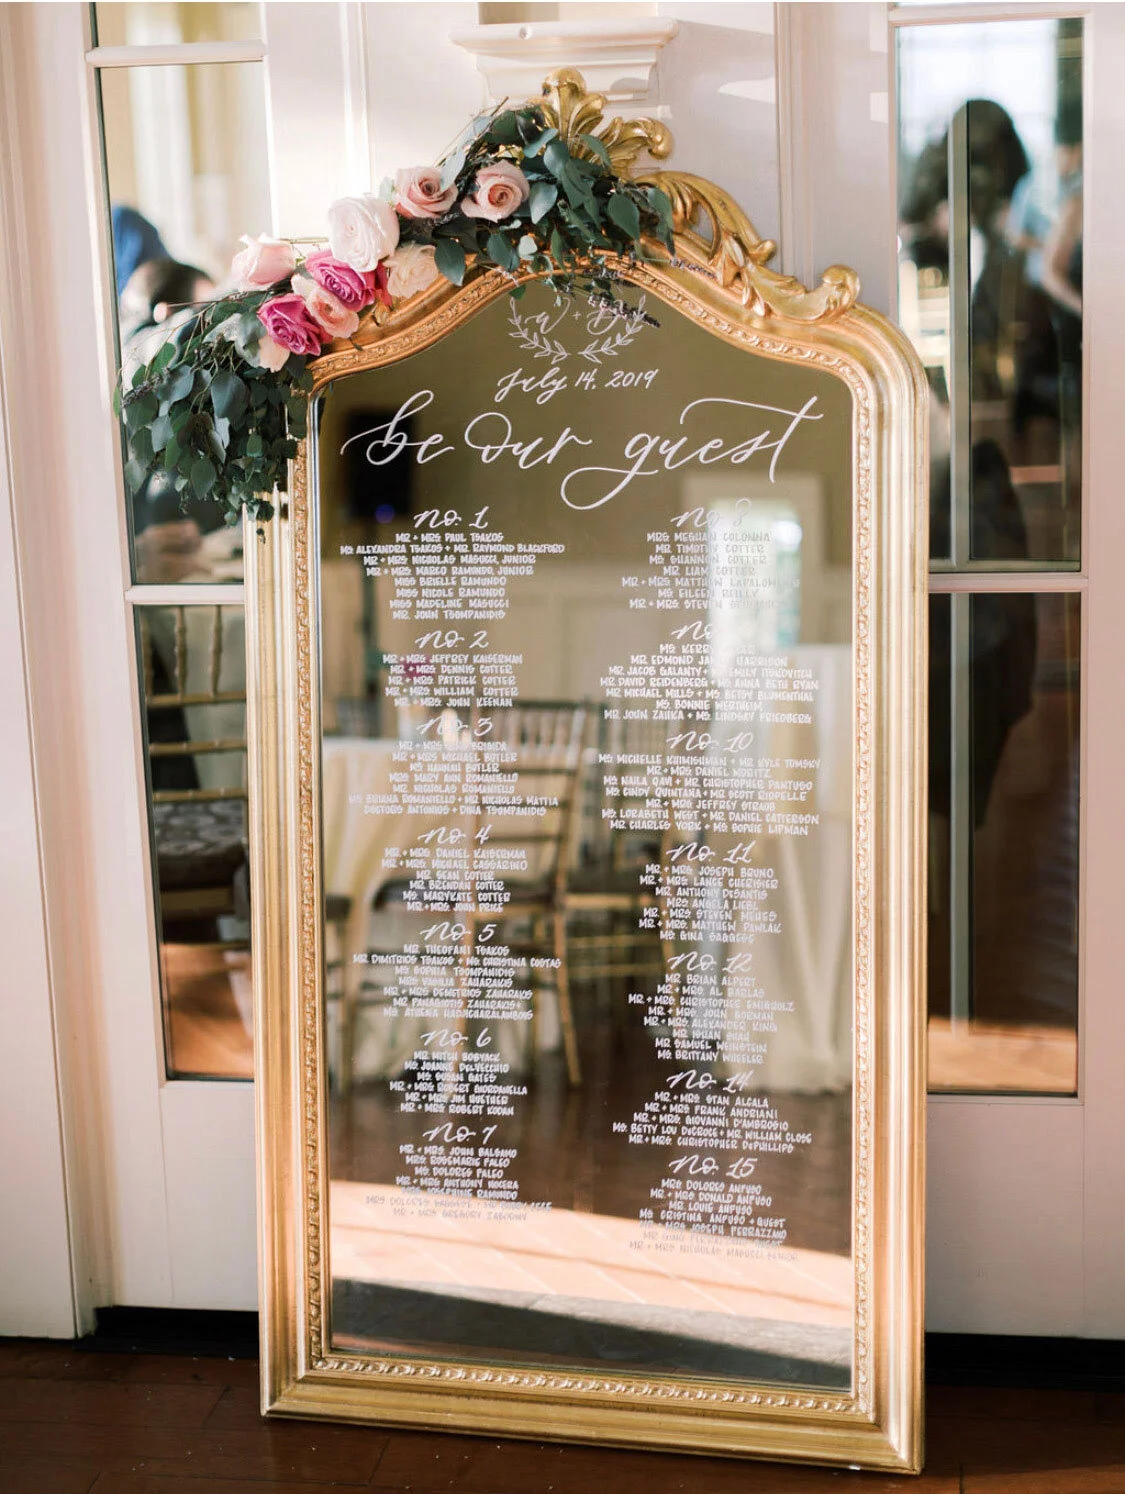 W + D
July 14, 2019
be our guest
no. 1
MR + MRS PAUL TSAKOS
MS. ALEXANDRA TSAKOS + MR. RAYMOND BLACKFORD
MR + MRS NICHOLAS MASUCCI, JUNIOR
MR + MRS MARCO RAMUNDO, JUNIOR
MISS BRIELLE RAMUNDO
MISS NICOLE RAMUNDO
MISS MADELINE MASUCCI
MR. JOHN TSOMPANIDIS
no. 2
MR + MRS JEFFREY KAISERMAN
MR. + MRS. DENNIS COTTER
MR + MRS PATRICK COTTER
MR + MRS WILLIAM COTTER
MR + MRS. JOHN KEENAN
no. 3
MR + MRS BRIGIDA
MR + MRS MICHAEL BUTLER
MS. HANNAH BUTLER
MRS. MARY ANN ROMANIELLO
MR. NICHOLAS ROMANIELLO
MS. BRIANA ROMANIELLO + MR. NICHOLAS MATTIA
DOCTORS ANTONIOS + DINA TSOMPANIDIS
no. 4
MR. + MRS. DANIEL KAISERMAN
MR. + MRS. MICHAEL CASSARINO
MR. SEAN COTTER
MR. BRENDAN COTTER
MS. MARYKATE COTTER
MR. + MRS. JOHN PRICE
no. 5
MR. THEOFANI TSAKOS
MR. DIMITRIOS TSAKOS + MS. CHRISTINA COSTAS
MS. SOPHIA TSOMPANIDIS
MRS. VASILIA ZAHARAKIS
MR. + MRS. DEMETRIOS ZAHARAKIS
MR. PANAGIOTIS ZAHARAKIS +
MS. ATHENA HADJICHARALAMBOUS
no. 6
MR. MITCH BOBYACK
MS. JOANNE DELVECCHIO
MS. SUSAN GATES
MR. + MRS. ROBERT GIORDANELLA
MR. + MRS. JIM HUETHER
MR. + MRS. ROBERT KODAN
no. 7
MR. + MRS. JOHN BALSAMO
MRS. ROSEMARIE FALEO
MS. DOLORES FALEO
MR. + MRS. ANTHONY NOCERA
JOSEPHINE RAMUNDO
MRS. DOLORES
MR. + MRS. GREGORY ZABORNY
no. 8
MRS. MEGHAN COLONNA
MR. TIMOTHY COTTER
MS. SHANNON COTTER
MR. LIAM COTTER
MR + MRS. MATTHEW
MS. EILEEN REILLY
MR + MRS. STEVEN
no.
MS. KERRY
MR. EDMOND HARRISON
MR. JACOB GALANTY + MS. EMILY ITSKOVITCH
MR. DAVID REIDENBERG + MS. ANNA BETH RYAN
MR. MICHAEL MILLS + MS. BETSY BLUMENTHAL
MS. BONNIE WERTHEIM
MR. JOHN ZAJKA + MS. LINDSAY FRIEDBERG
no. 10
MS. MICHELLE KHIMISHMAN + MR. KYLE TOMSKY
MR. + MRS. DANIEL MORITZ
MS. NAILA QAVI + MR. CHRISTOPHER PANTUSO
MS. CINDY QUINTANA + MR. SCOTT RIOPELLE
MR. + MRS. JEFFREY STRAUB
MS. LORABETH WEST + MR. DANIEL CATTERSON
MR. CHARLES YORK + MS. SOPHIE LIPMAN
no. 11
MR. + MRS. JOSEPH BRUNO
MR. + MRS. LANCE CUERISIER
MR. ANTHONY DESANTIS
MRS. ANGELA LIEBL
MR. + MRS. STEVEN MEHES
MR. + MRS. MATTHEW PAWLAK
MS. GINA SAGGESE
no. 12
MR. BRIAN ALPERT
MR. + MRS. AL BARLAS
MR. + MRS. CHRISTOPHER EMIGHOLZ
MR. + MRS. JOHN GORMAN
MR. + MRS. ALEXANDER KING
MR. ISHAN SHAH
MR. SAMUEL WEINSTEIN
MS. BRITTANY WHEELER
no. 14
MR. + MRS. STAN ALCALA
MR. + MRS. FRANK ANDRIANI
MR. + MRS. GIOVANNI D'AMBROSIO
MS. BETTY LOU DECROCE + MR. WILLIAM CLOSE
MR. + MRS. CHRISTOPHER DEPHILLIPS
no. 15
MRS. DOLORES ANFUSO
MR. + MRS. DONALD ANFUSO
MR. LOUIE ANFUSO
MS. CRISTINA ANFUSO + GUEST
MR. + MRS. JOSEPH FERRAZZANO
MR. GINO FERRAZZANO
MR. + MRS. NICHOLAS MASUCCI SENIOR